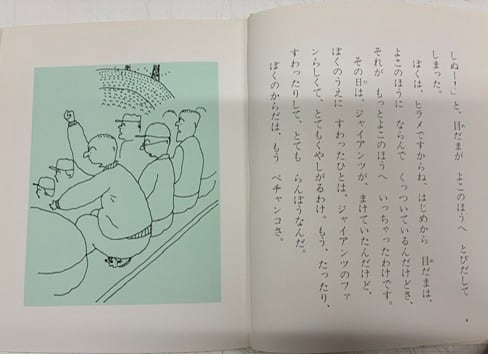 しぬー！」と、目だまが よこのほうへ とびだして
しまった。
ぼくは、ヒラメですからね、はじめから 目だまは、
よこのほうに ならんで くっついているんだけどさ、
それが もっとよこのほうへ いっちゃったわけです。
その日は、ジャイアンツが、まけていたんだけど、
ぼくのうえに すわったひとは、ジャイアンツのファ
ンらしくて、とてもくやしがるわけ。もう、たったり、
すわったりして、とても らんぼうなんだ。
ぼくのからだは、もう ペチャンコさ。